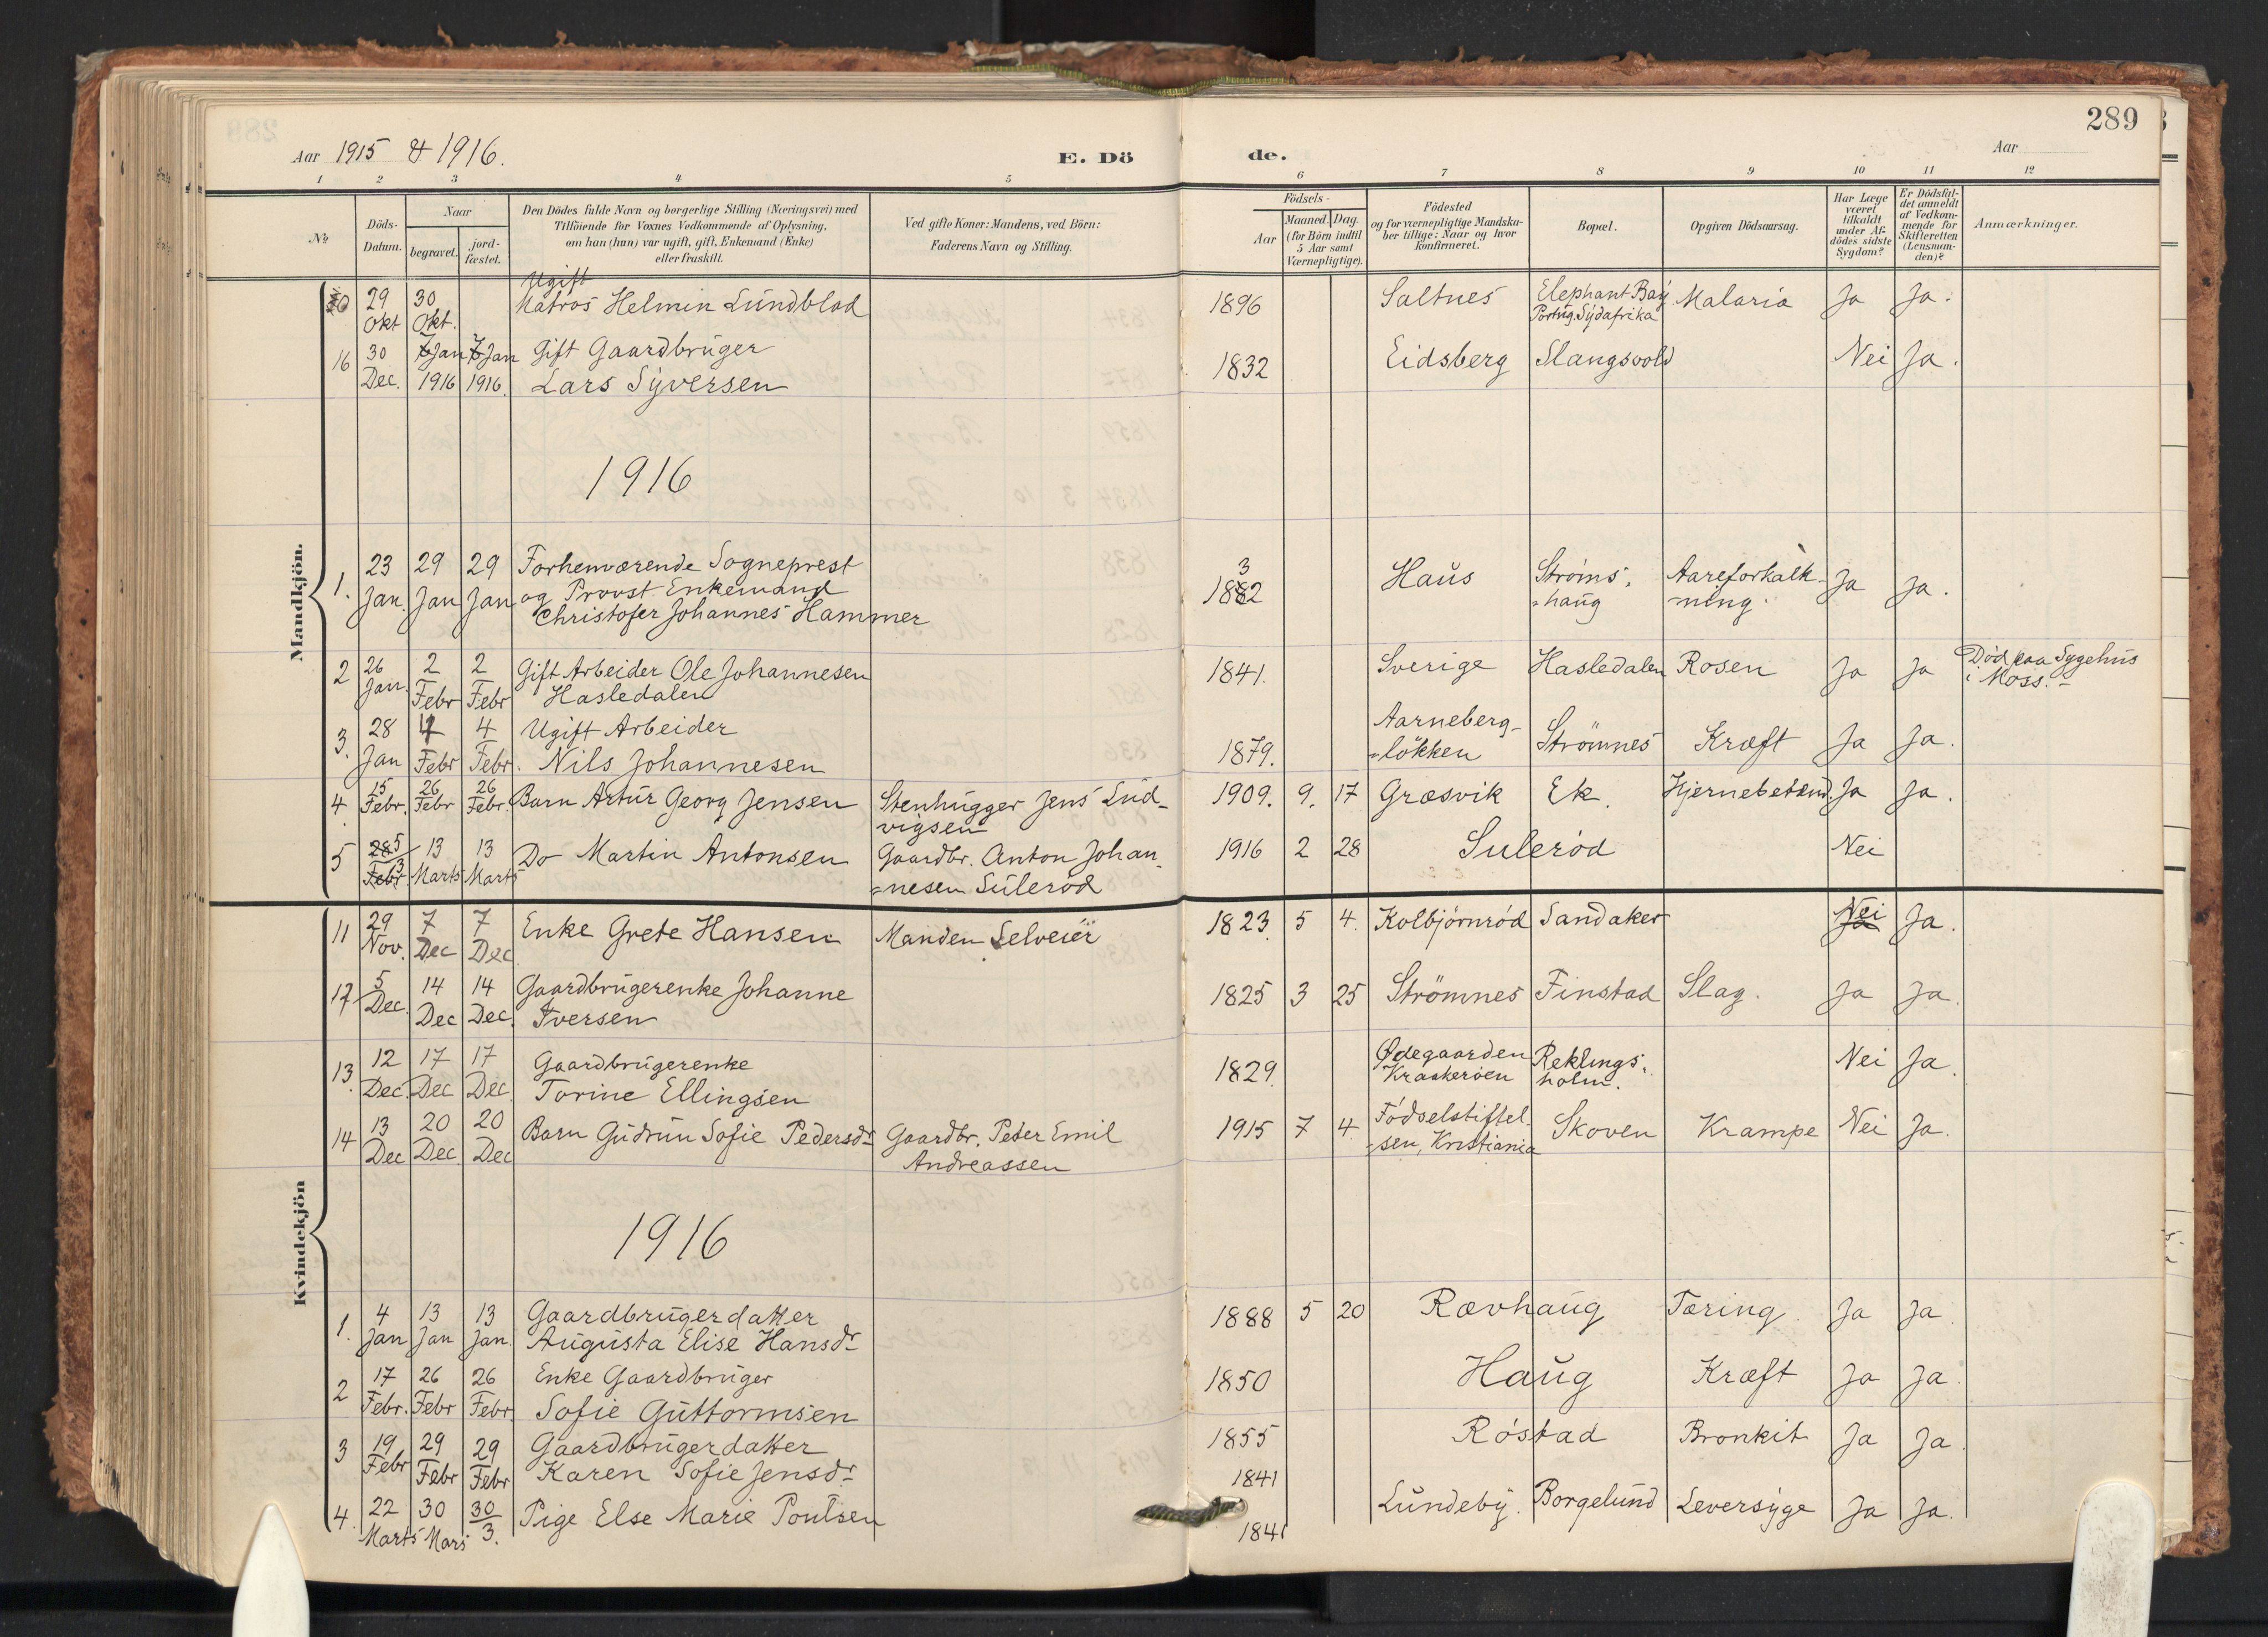 289
Aar 1915 & 1916.
E. Dö
de.
Aar
1 2 3 4 5 6 7 8 9 10 11 12
No
Döds-
Datum.
Naar
begravet.
jord-
fæstet.
Den Dödes fulde Navn og borgerlige Stilling (Næringsvei) med
Tilföiende for Voxnes Vedkommende af Oplysning,
om han (hun) var ugift, gift, Enkemand (Enke)
eller fraskilt.
Ved gifte Koner: Mandens, ved Börn:
Faderens Navn og Stilling.
Födsels-
Aar
Maaned.
Dag.
(for Börn indtil
5 Aar samt
Værnepligtige).
Födested
og for værnepligtige Mandska-
ber tillige: Naar og hvor
konfirmeret.
Bopæl.
Opgiven Dödsaarsag.
Har Læge
været
tilkaldt
under Af-
dödes sidste
Sygdom?
Er Dödsfal-
det anmeldt
af Vedkom-
mende for
Skifteretten
(Lensman-
den)?
Anmærkninger.
Mandkjön.
Ugift
29 30 Matros Helmin Lundblad 1896 Saltnes Elephant Bay Malaria Ja Ja.
Okt Okt. Portug. Sydafrika
16 30 Jan Jan Gift Gaardbruger 1832 Eidsberg Slangsvold Nei Ja.
Dec. 1916 1916. Lars Syversen
1916
1. 23 29 29 Forhenværende Sogneprest 3 1882 Haus Strøms- Aareforkalk- Ja Ja.
Jan. Jan Jan og Provst Enkemand =haug =ning.
Christofer Johannes Hammer
2 26 2 2 Gift Arbeider Ole Johannesen 1841. Sverige Hasledalen Rosen Ja Ja Död paa Sygehus
Jan. Febr Febr Hasledalen i Moss.-
3. 28 4 4 Ugift Arbeider 1879. Aarneberg- Strömnes Kræft Ja Ja.
Jan Febr Febr. Nils Johannesen =lökken
4. 15 26 26 Barn Artur Georg Jensen Stenhugger Jens Lud- 1909. 9. 17 Græsvik Ek. Hjernebetænd. Ja Ja.
Febr. Febr Febr. vigsen
5 28 5 13 13 Do Martin Antonsen Gaardbr. Anton Johan- 1916 2 28 Sulerød Nei
Febr. 3 Marts Marts =nesen Sulerød
Kvindekjön
11 29 7 7 Enke Grete Hansen Manden Selveier 1823. 5 4. Kolbjørnrød Sandaker Nei Ja Ja.
Nov. Dec Dec
17 5 14 14 Gaardbrugerenke Johanne 1825 3 25 Strömnes Finstad Slag. Ja Ja.
Dec. Dec Dec. Iversen
13. 12 17 17 Gaardbrugerenke 1829. Ødegaarden Reklings- Nei Ja.
Dec. Dec Dec Torine Ellingsen Kraakerøen holm.
14 13 20 20 Barn Gudrun Sofie Pedersdr Gaardbr. Peter Emil 1915 7 4. Fødselstiftel- Skoven Krampe Nei Ja.
Dec Dec. Dec Andreassen =sen, Kristiania
1916
1. 4 13 13 Gaardbrugerdatter 1888 5 20 Rævhaug Tæring. Ja Ja
Jan Jan Jan. Augusta Elise Hansdr
2 17 26 26 Enke Gaardbruger 1850 Haug Kræft Ja Ja
Febr. Febr Febr. Sofie Guttormsen
3 19 29 29 Gaardbrugerdatter 1855 Röstad Bronkit Ja Ja.
Febr Febr Febr Karen Sofie Jensdr
4. 22 30 30 Pige Else Marie Poulsen 1841 Lundeby. Borgelund Leversyge Ja Ja.
Marts Mars 3. 1841